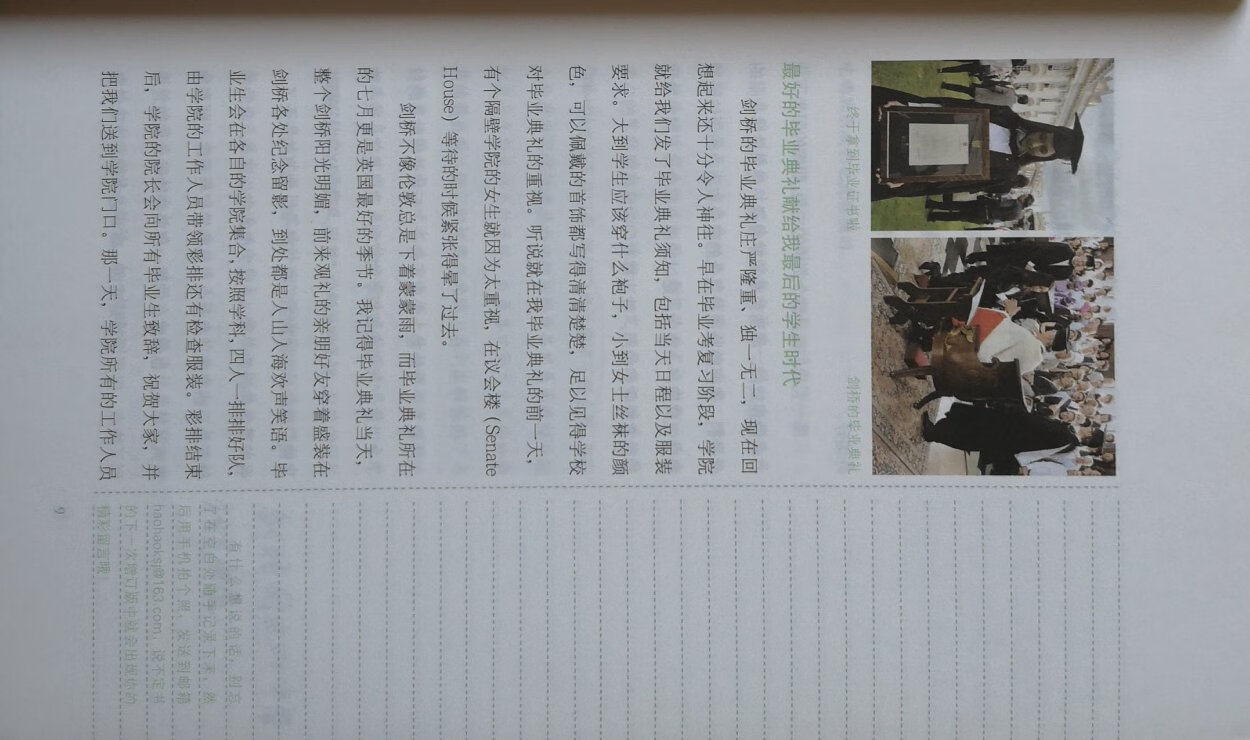 终于拿到毕业证书啦
剑桥的毕业典礼
最好的毕业典礼献给我最后的学生时代
剑桥的毕业典礼庄严隆重、独一无二，现在回
想起来还十分令人神往。早在毕业考复习阶段，学院
就给我们发了毕业典礼须知，包括当天日程以及服装
要求。大到学生应该穿什么袍子，小到女士丝袜的颜
色，可以佩戴的首饰都写得清清楚楚，足以见得学校
对毕业典礼的重视。听说就在我毕业典礼的前一天，
有个隔壁学院的女生就因为太重视，在议会楼（Senate
House）等待的时候紧张得晕了过去。
剑桥不像伦敦总是下着蒙蒙雨，而毕业典礼所在
的七月更是英国最好的季节。我记得毕业典礼当天，
整个剑桥阳光明媚，前来观礼的亲朋好友穿着盛装在
剑桥各处纪念留影，到处都是人山人海欢声笑语。毕
业生会在各自的学院集合，按照学科，四人一排排好队，
由学院的工作人员带领彩排还有检查服装。彩排结束
后，学院的院长会向所有毕业生致辞，祝贺大家，并
把我们送到学院门口。那一天，学院所有的工作人员
有什么想说的话，别忘
了在空白处随手记录下来，然
后用手机拍个照，发送到邮箱
haobaoksj@163.com，说不定书
的下一次增订版中就会出现你的
精彩留言哦！
9